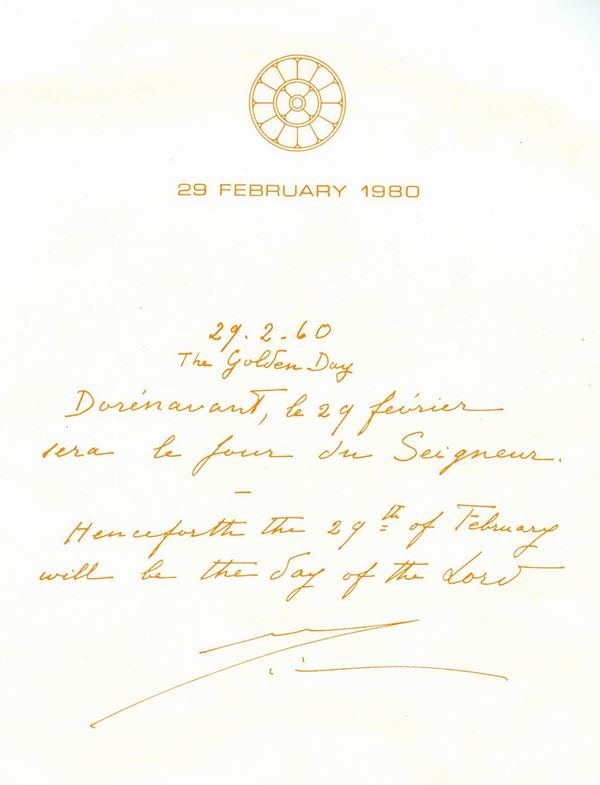 29 FEBRUARY 1980
29.2.60
The Golden Day
Dorénavant, le 29 février
sera le jour du Seigneur.
Henceforth the 29th of February
will be the day of the Lord